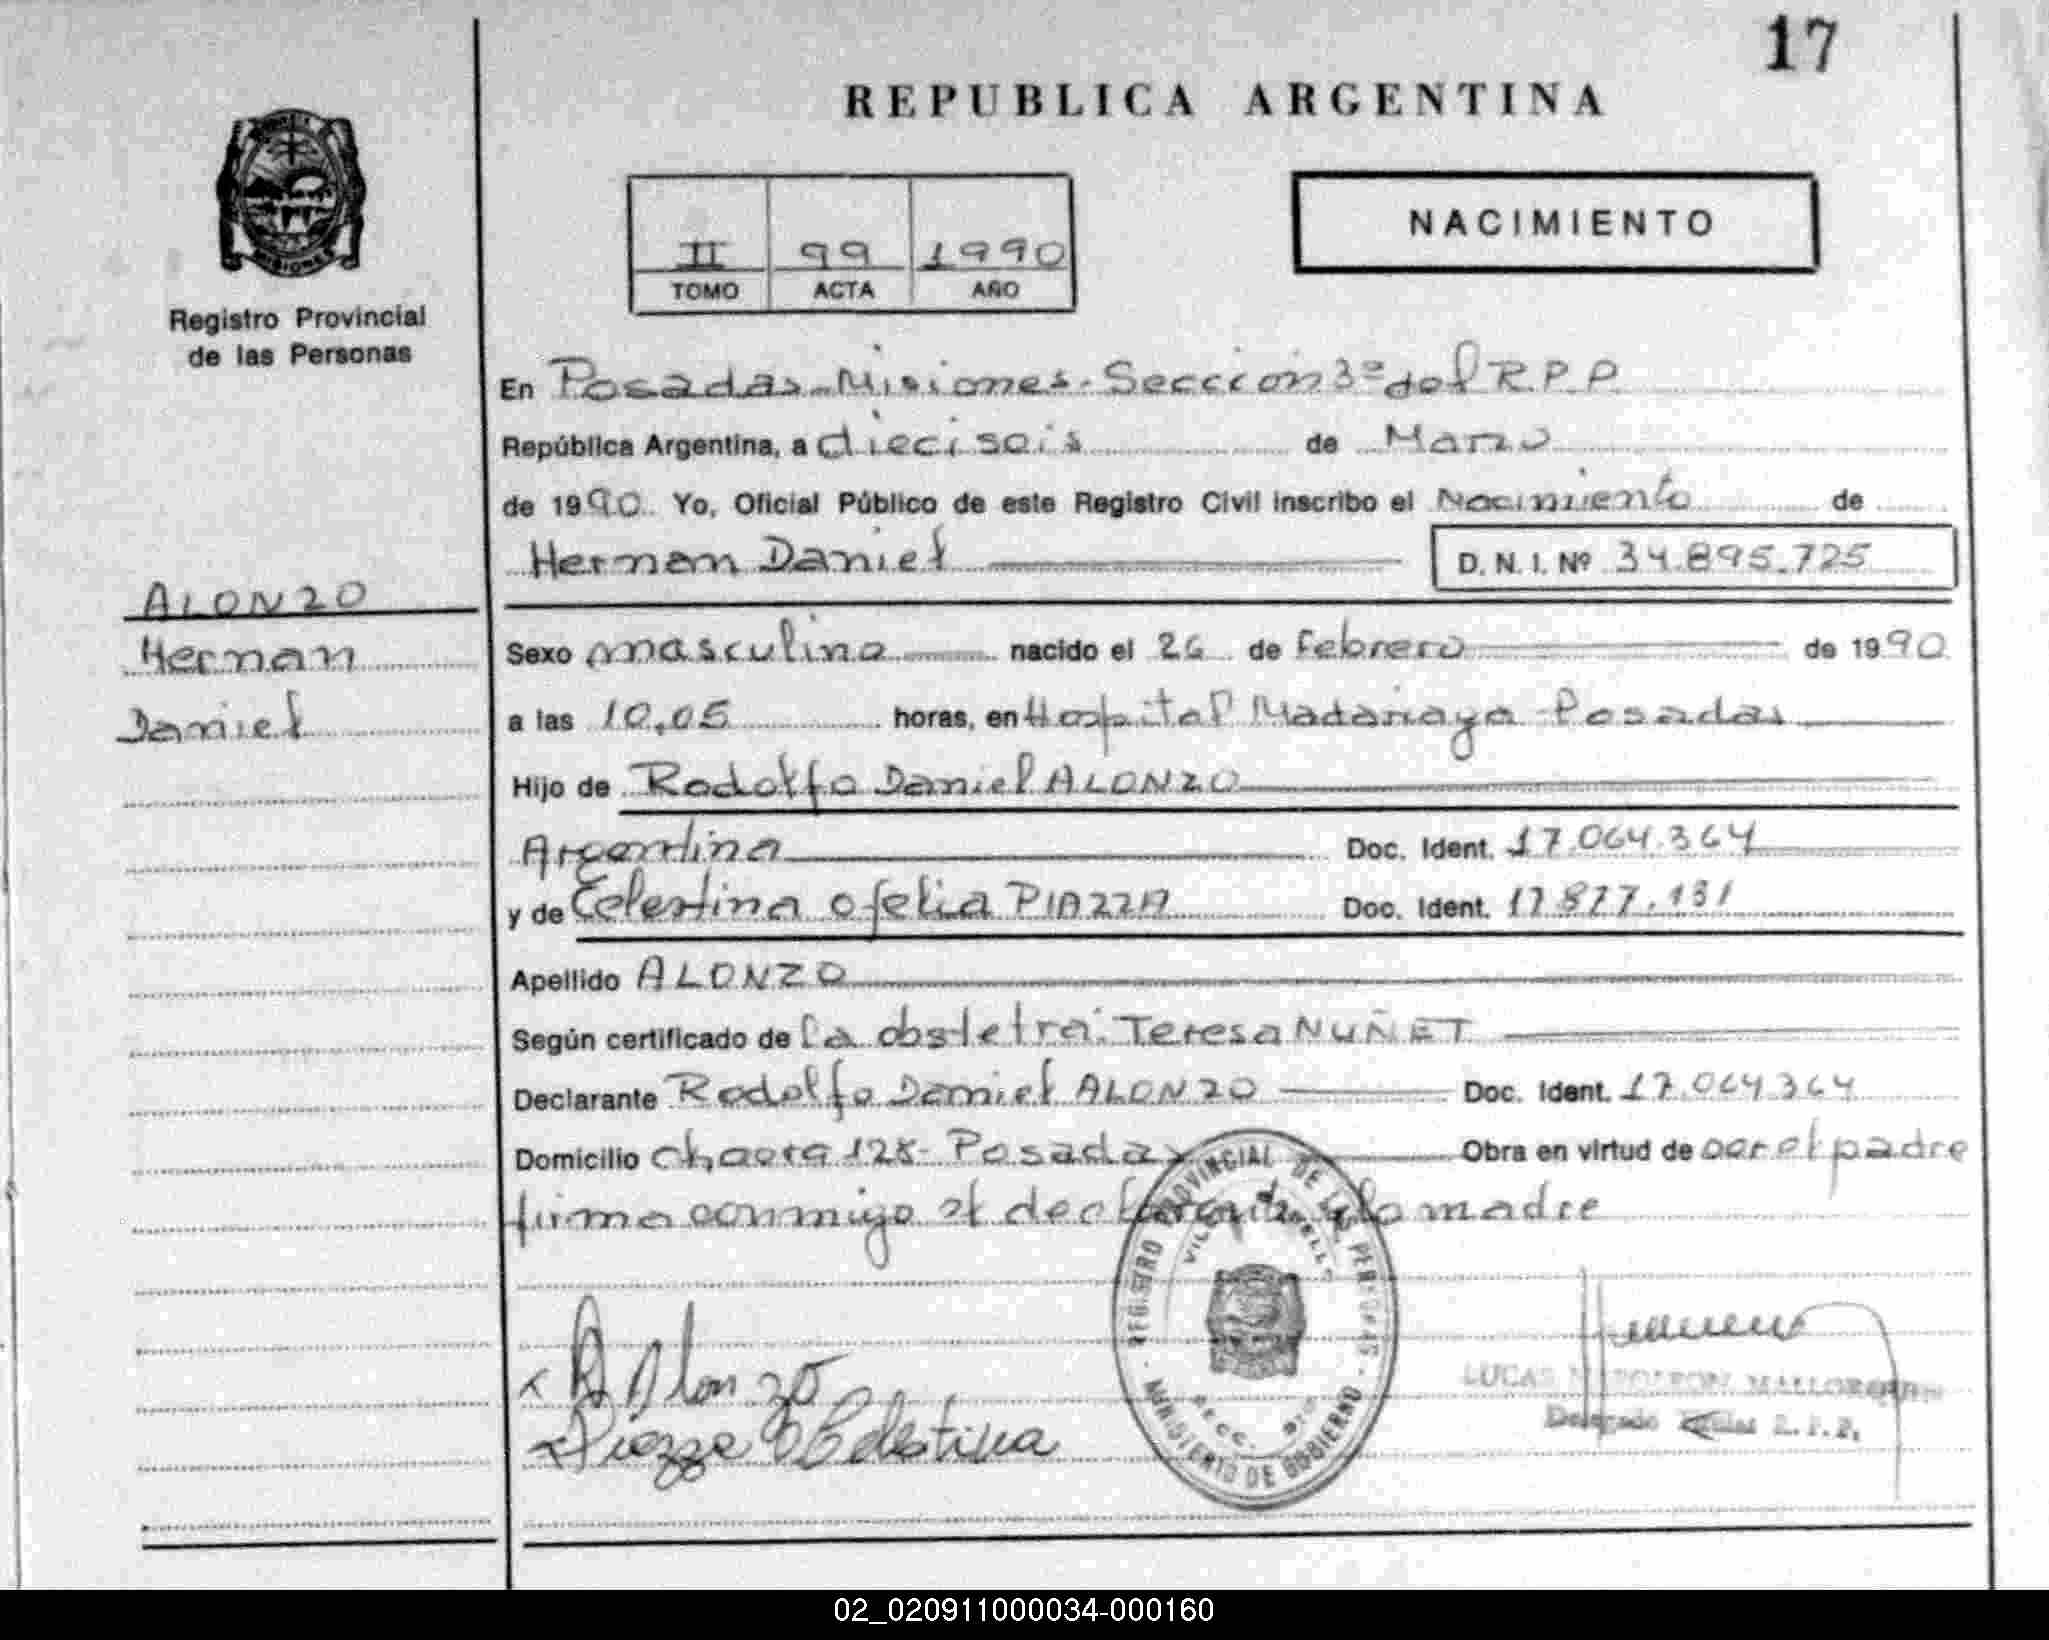 17
REPUBLICA ARGENTINA
NACIMIENTO
II 99 1990
TOMO ACTA AÑO
Registro Provincial
de las Personas
En Posadas-Misiones-Sección 3ª del R.P.P.
República Argentina, a dieciseis de Marzo
de 1990 Yo, Oficial Público de este Registro Civil inscribo el Nacimiento de
Hernan Daniel D. N. I. Nº 34.895.725
ALONZO
Hernan
Daniel
Sexo masculino nacido el 26 de Febrero de 1990
a las 10,05 horas, en Hospital Madariaga Posadas
Hijo de Rodolfo Daniel ALONZO
Argentina Doc. Ident. 17.064.364
y de Celestina Ofelia PIAZZA Doc. Ident. 17.877.131
Apellido ALONZO
Según certificado de la obstetra: Teresa NUÑET
Declarante Rodolfo Daniel ALONZO Doc. Ident. 17.064364
Domicilio Chacra 128- Posadas Obra en virtud de ser el padre
firma conmigo el declarante y la madre
REGISTRO PROVINCIAL DE LAS PERSONAS
MINISTERIO DE GOBIERNO
SECC.
R Alonzo
Piazza O Celestina
LUCAS NAPOLEON
Delegado R.P.P.
02_020911000034-000160